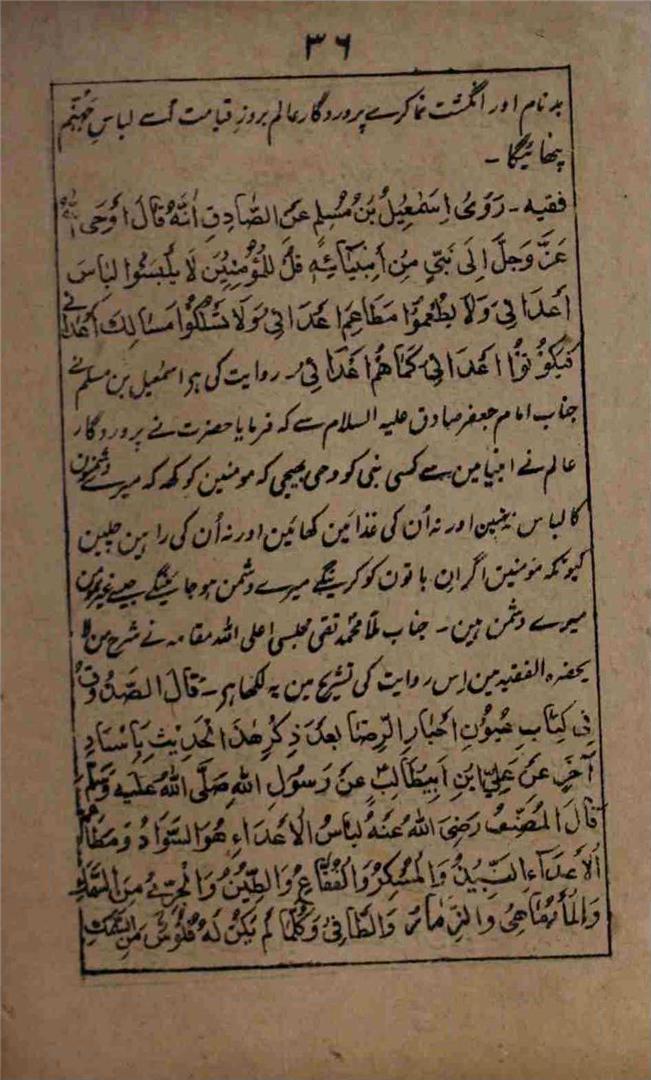 ۳۶
بدنام اور انگشت نما کرے پروردگار عالم بروز قیامت اُسے لباسِ جہنّم
پنھائیگا۔
فقیه۔ رَوَىٰ اِسْمٰعِيلُ بْنُ مُسْلِمٍ عَنِ الصَّادِقِ اَنَّهُ قَالَ اَوْحَى اللّٰهُ
عَزَّ وَجَلَّ اِلَى نَبِيٍّ مِنْ اَنْبِيَائِهِ قُلْ لِلْمُؤْمِنِيْنَ لَا يَلْبَسُوْا لِبَاسَ
اَعْدَائِيْ وَلَا يَطْعَمُوْا مَطَاعِمَ اَعْدَائِيْ وَلَا تَسْلُكُوْا مَسَالِكَ اَعْدَائِيْ
فَيَكُوْنُوْا اَعْدَائِيْ كَمَا هُمْ اَعْدَائِيْ۔ روایت کی ہو اسمٰعیل بن مسلم نے
جناب امام جعفر صادق علیہ السلام سے کہ فرمایا حضرت نے پروردگار
عالم نے انبیا مین سے کسی نبی کو وحی بھیجی کہ مومنین کو کھ کہ میرے دشمنون
کا لباس نپہنین اور نہ اُن کی غذائین کھائین اور نہ اُن کی راہین چلین
کیونکہ مؤمنین اگر ان باتون کو کرینگے میرے دشمن ہو جائینگے جیسے غیر مومن
میرے دشمن ہین۔ جناب ملا محمد تقی مجلسی اعلی اللہ مقامہ نے شرح من لا
یحضرہ الفقیہ مین اِس روایت کی تشریح مین یہ لکھا ہر۔ قَالَ الصَّدُوْقُ
فِيْ كِتَابِ عُيُوْنِ اَخْبَارِ الرِّضَا بَعْدَ ذِكْرِ هٰذَا الْحَدِيْثِ بِاِسْنَادٍ
آخَرَ عَنْ عَلِيِّ ابْنِ اَبِيْطَالِبٍ عَنْ رَسُوْلِ اللّٰهِ صَلَّى اللّٰهُ عَلَيْهِ وَسَلَّمَ
قَالَ الْمُصَنِّفُ رَضِيَ اللّٰهُ عَنْهُ لِبَاسُ الْاَعْدَاءِ هُوَ السَّوَادُ وَمَطَاعِمُ
الْاَعْدَآءِ النَّبِيْذُ وَالْمُسْكِرُ وَالْفُقَّاعُ وَالطِّيْنُ وَالْجِرِّيُّ مِنَ السَّمَكِ
وَالْمَارْمَاهِيْ وَالزِّمَّارُ وَالطَّافِيْ وَكُلُّمَا لَمْ يَكُنْ لَهُ فُلُوْسٌ مِنَ السَّمَكِ